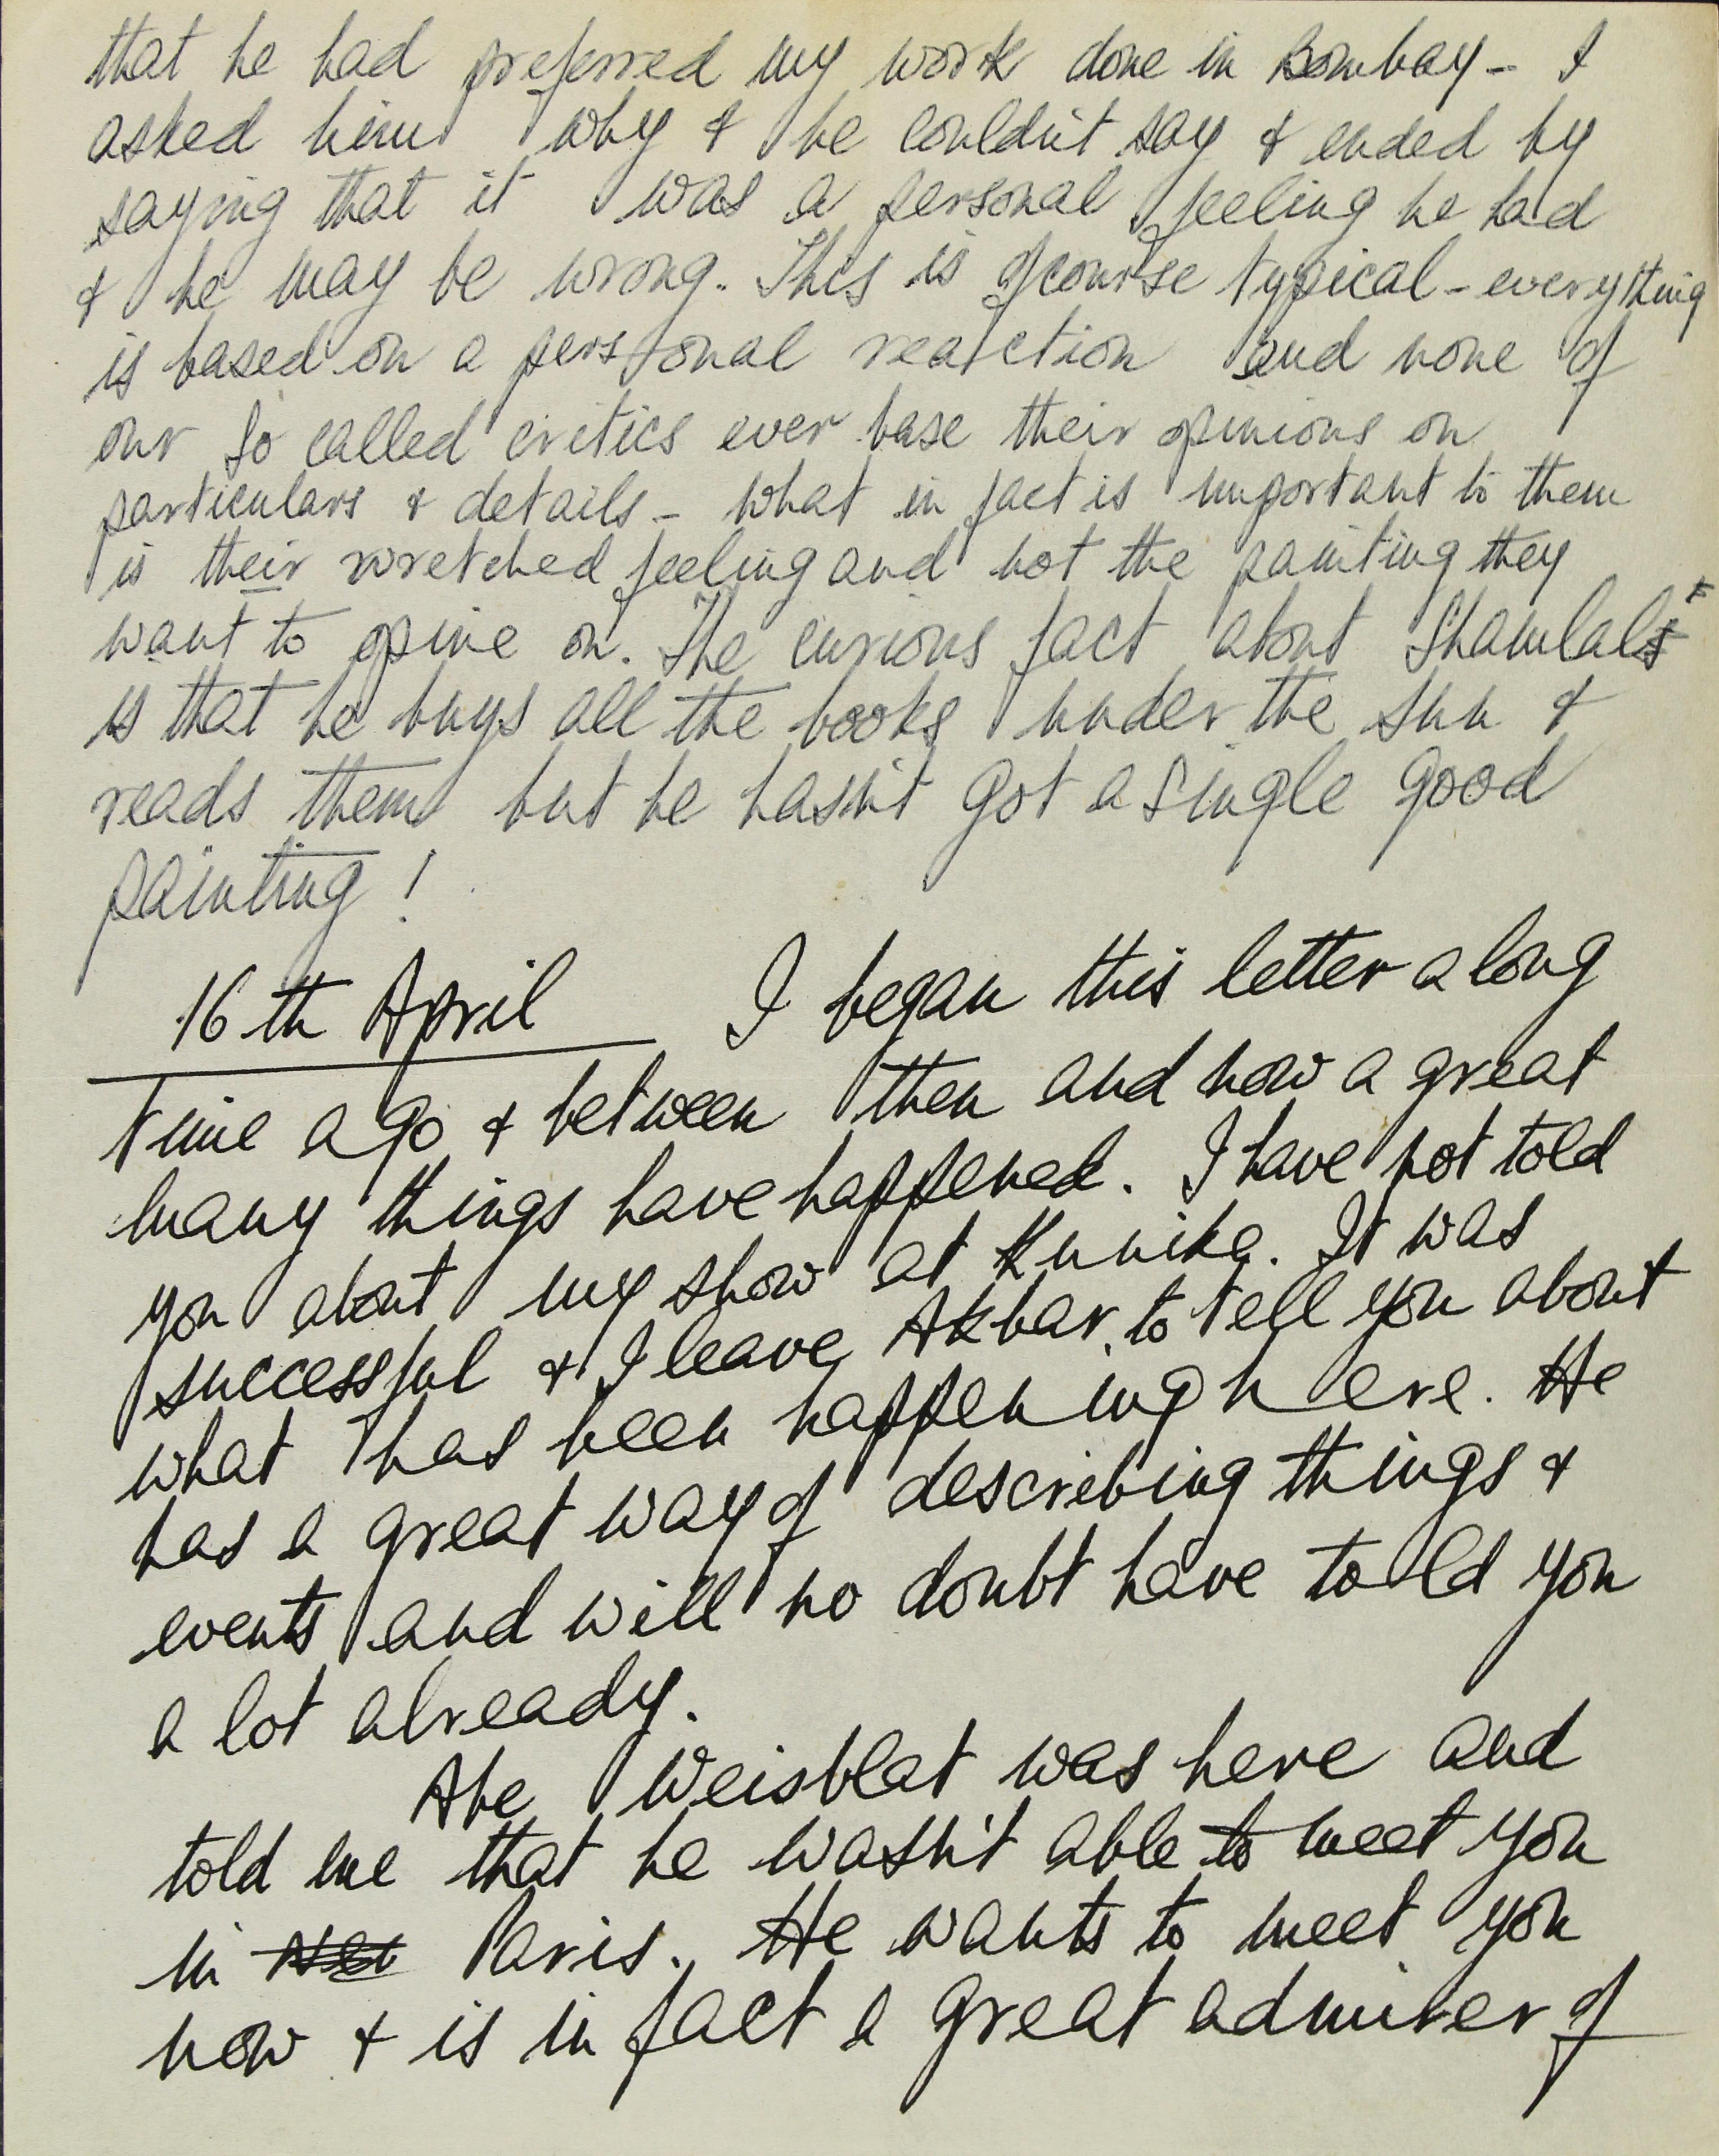 that he had preferred my work done in Bombay - I
asked him why & he couldn't say & ended by
saying that it was a personal feeling he had
& he may be wrong. This is ofcourse typical - everything
is based on a personal reaction and none of
our so called critics ever base their opinions on
particulars & details - what in fact is important to them
is their wretched feeling and not the painting they
want to opine on. The curious fact about Shamlal
is that he buys all the books under the sun &
reads them but he hasn't got a single good
painting!
16th April I began this letter a long
time ago & between then and now a great
many things have happened. I have not told
you about my show at Kunika. It was
successful & I leave Akbar to tell you about
what has been happening here. He
has a great way of describing things &
events and will no doubt have told you
a lot already.
Abe Weisblat was here and
told me that he wasn't able to meet you
in Paris. He wants to meet you
now & is in fact a great admirer of